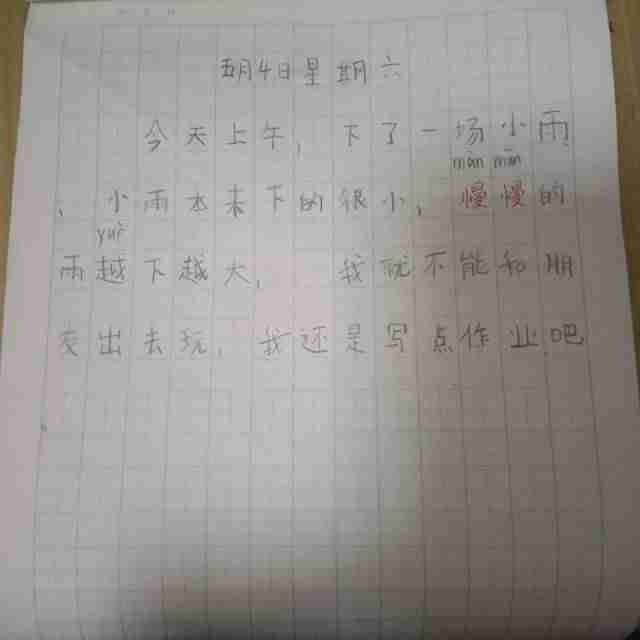 五月4日星期六
今天上午，下了一场小雨
màn màn
，小雨本来下的很小，慢慢的
yuè
雨越下越大，我就不能和朋
友出去玩，我还是写点作业吧